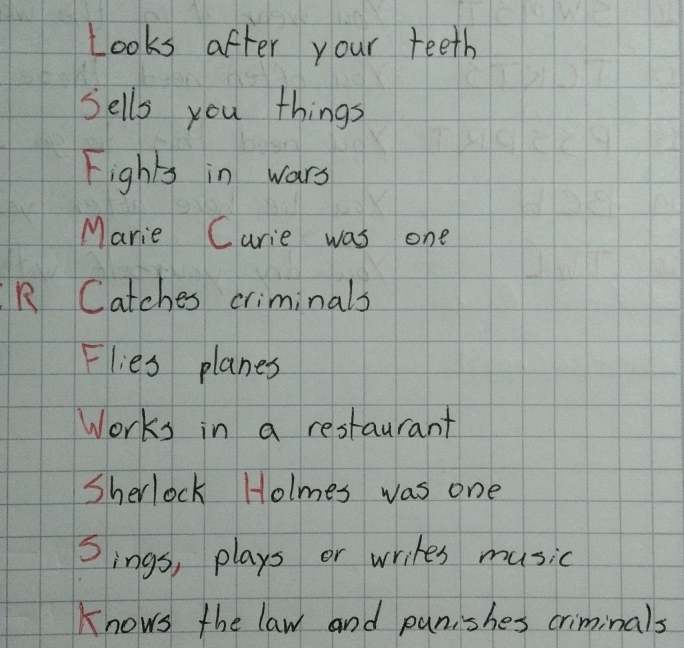 Looks after your teeth
Sells you things
Fights in wars
Marie Curie was one
R Catches criminals
Flies planes
Works in a restaurant
Sherlock Holmes was one
Sings, plays or writes music
Knows the law and punishes criminals